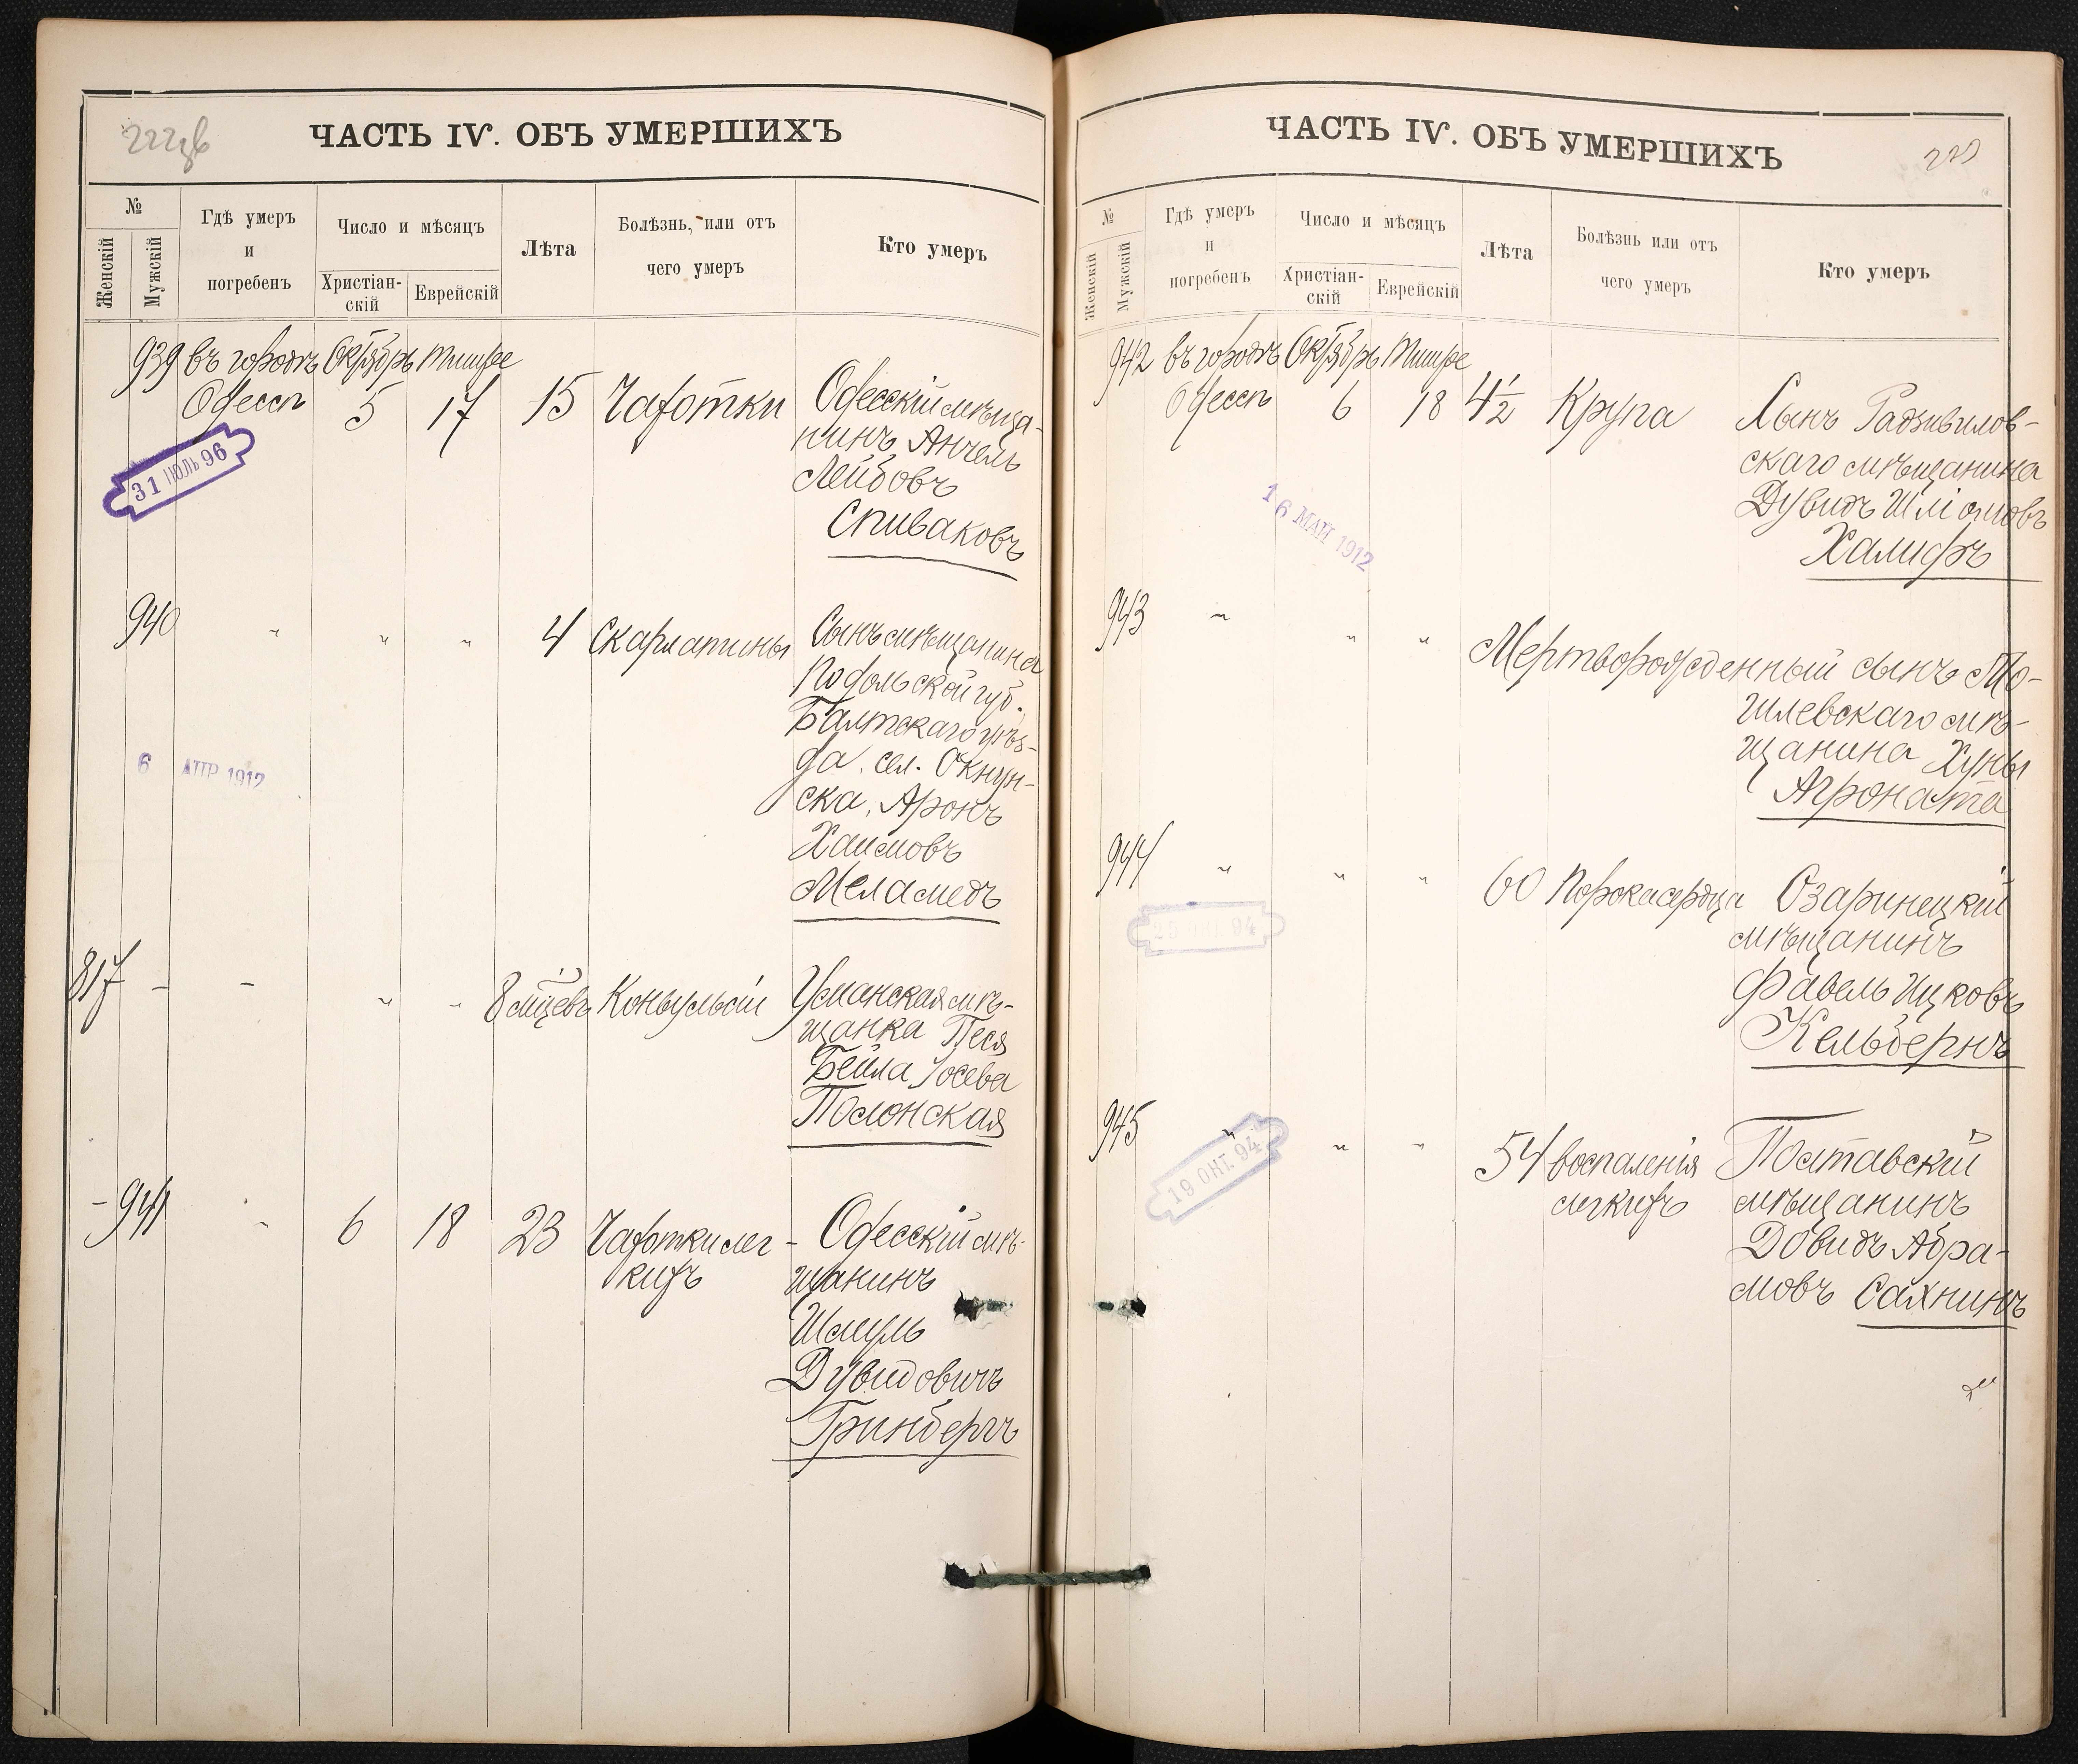 222 об
ЧАСТЬ IV. ОБЪ УМЕРШИХЪ
№
Женскій
Мужскій
Гдѣ умеръ
и
погребенъ
Число и мѣсяцъ
Христіан-
скій
Еврейскій
Лѣта
Болѣзнь, или отъ
чего умеръ
Кто умеръ
939 въ городѣ Октябрь Тишре
Одессѣ 5 17 15 Чахотки Одесскій мѣща-
нинъ Анчель
Лейбовъ
Спиваковъ
31 ІЮЛЬ 96
940 " " " 4 Скарлатины Сынъ мѣщанина
Подольской губ.
Балтскаго уѣз-
да, сел. Окнун-
ска, Аронъ
Хаимовъ
Меламедъ
6 АПР 1912
817 - - " " 8 мѣцевъ Конвульсіи Уманская мѣ-
щанка Песя
Бейла Іосева
Полонская
- 941 " 6 18 23 Чахотки лег-
кихъ
Одесскій мѣ-
щанинъ
Шмуль
Дувидовичъ
Гринбергъ
ЧАСТЬ IV. ОБЪ УМЕРШИХЪ
223
№
Женскій
Мужскій
Гдѣ умеръ
и
погребенъ
Число и мѣсяцъ
Христіан-
скій
Еврейскій
Лѣта
Болѣзнь или отъ
чего умеръ
Кто умеръ
942 въ городѣ Октябрь Тишре
Одессѣ 6 18 4½ Крупа Сынъ Радзивилов-
скаго мѣщанина
Дувидъ Шліомовъ
Халифъ
16 МАЙ 1912
943 " " " Мертворожденный сынъ Мо-
гилевскаго мѣ-
щанина Хуны
Агроната
944 " " " 60 Порока сердца Озаринецкій
мѣщанинъ
Фавель Ицковъ
Кельбернъ
94
945 " " " 54 воспаленія
легкихъ
Полтавскій
мѣщанинъ
Довидъ Абра-
мовъ Сахнинъ
19 ОКТ 94